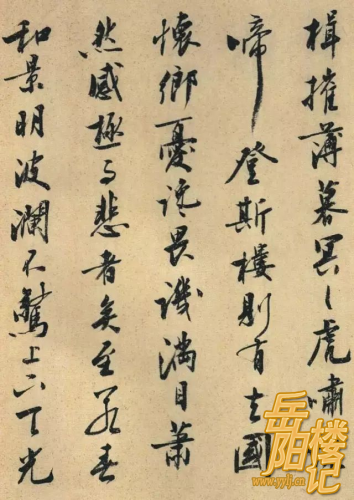 楫摧薄暮冥々虎嘯
啼登斯樓則有去國
懷鄉憂讒畏譏滿目蕭
然感極而悲者矣至若春
和景明波瀾不驚上下天光
岳阳楼记
www.yylj.cn